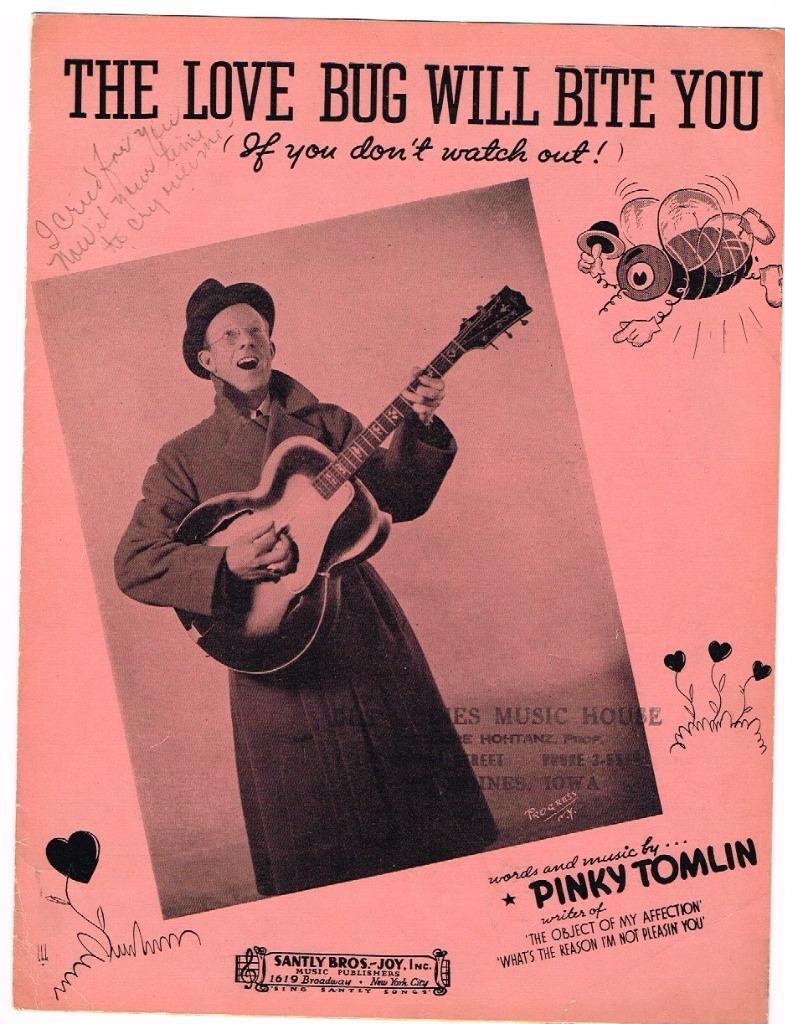 THE LOVE BUG WILL BITE YOU
(If you don't watch out!)
I cried for you
now it your time
to cry over me
MES MUSIC HOUSE
HOHTANZ, PROP.
STREET PHONE 3-
MOINES, IOWA
PROGRESS
N.Y.
words and music by...
★ PINKY TOMLIN
writer of
'THE OBJECT OF MY AFFECTION'
'WHAT'S THE REASON I'M NOT PLEASIN' YOU'
SANTLY BROS.-JOY, Inc.
MUSIC PUBLISHERS
1619 Broadway • New York City
"SING SANTLY SONGS"